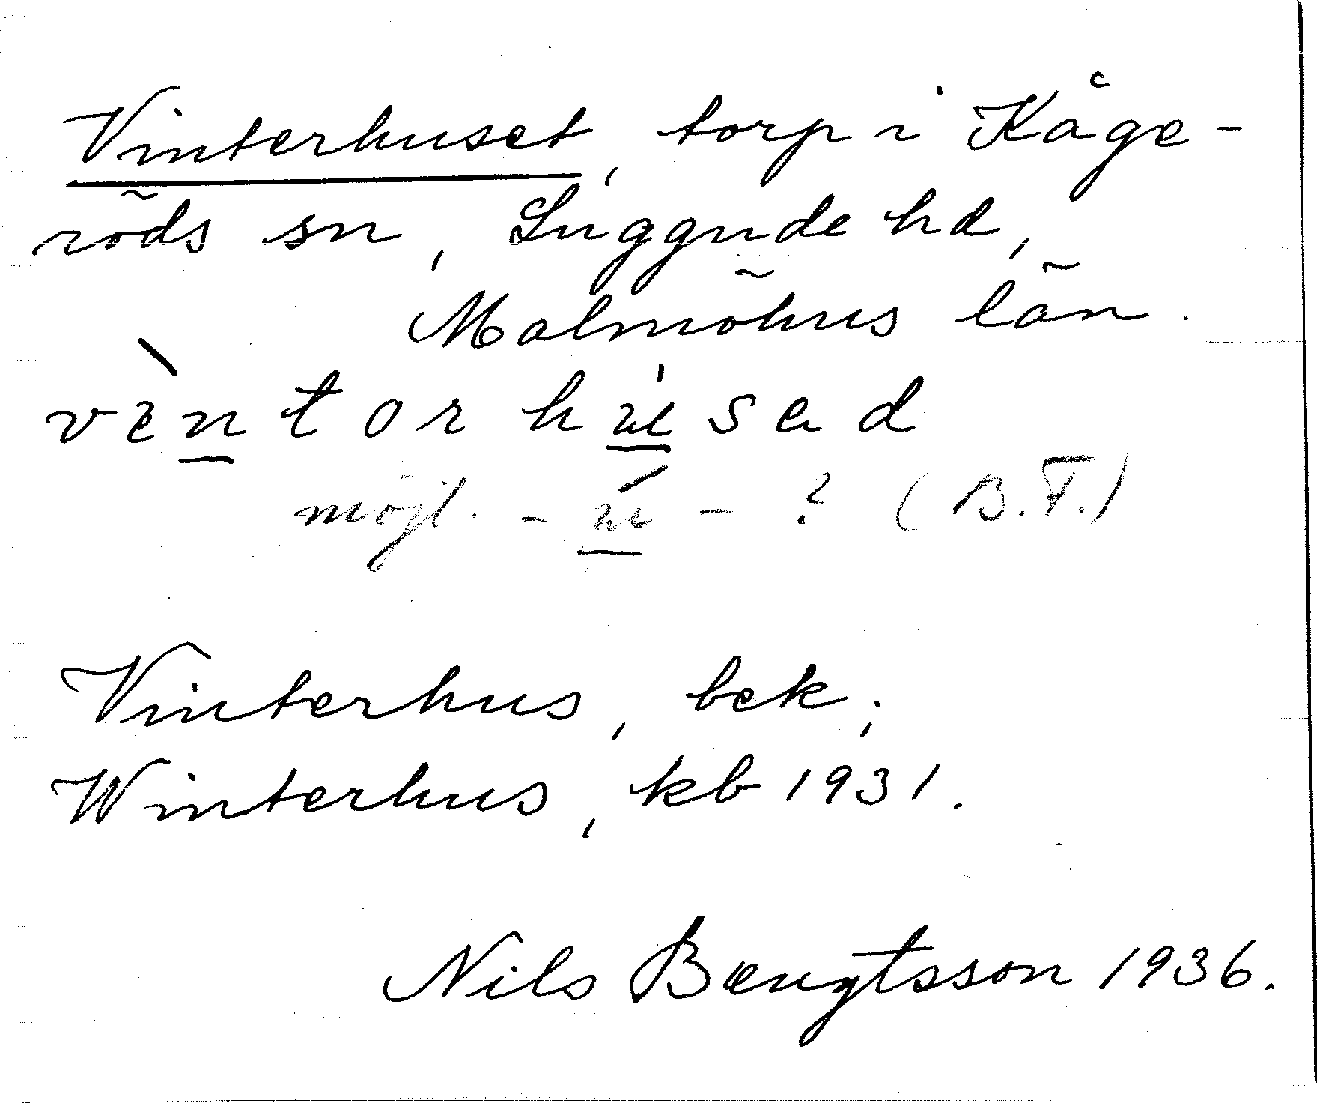 Vinterhuset, torp i Kåge-
röds sn, Luggude hd,
Malmöhus län.
vèntorhúsad
möjl. - ú - ? (B.F.)
Vinterhus, bek;
Winterhus, kb 1931.
Nils Bengtsson 1936.